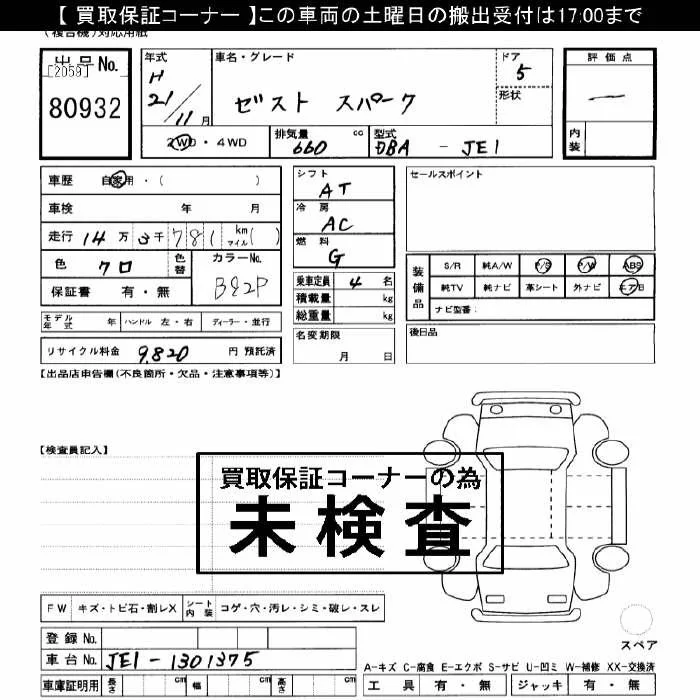 【 買取保証コーナー 】この車両の土曜日の搬出受付は17:00まで
(複合機)対応用紙
出品No.
[2059]
80932
年式
H
21/11月
車名・グレード
ゼスト スパーク
ドア
5
形状
評価点
—
内装
2WD・4WD
排気量 cc
660
型式
DBA - JE1
車歴 自家用・( )
車検 年 月
走行 14万 3千 781 km マイル( )
色 クロ
色替
カラーNo.
B92P
保証書 有・無
モデル年式 年 ハンドル 左・右 ディーラー・並行
リサイクル料金 9,820 円 預託済
シフト
AT
冷房
AC
燃料
G
乗車定員 4 名
積載量 kg
総重量 kg
名変期限
月 日
セールスポイント
装備品
S/R 純A/W P/S P/W ABS
純TV 純ナビ 革シート 外ナビ エアB
ナビ型番:
後日品
【出品店申告欄(不良箇所・欠品・注意事項等)】
【検査員記入】
買取保証コーナーの為
未検査
FW キズ・トビ石・割レX シート内装 コゲ・穴・汚レ・シミ・破レ・スレ
登録No.
車台No. JE1-1301375
車庫証明用 長さ cm 幅 cm 高さ cm
スペア
A-キズ C-腐食 E-エクボ S-サビ U-凹ミ W-補修 XX-交換済
工具 有・無 ジャッキ 有・無